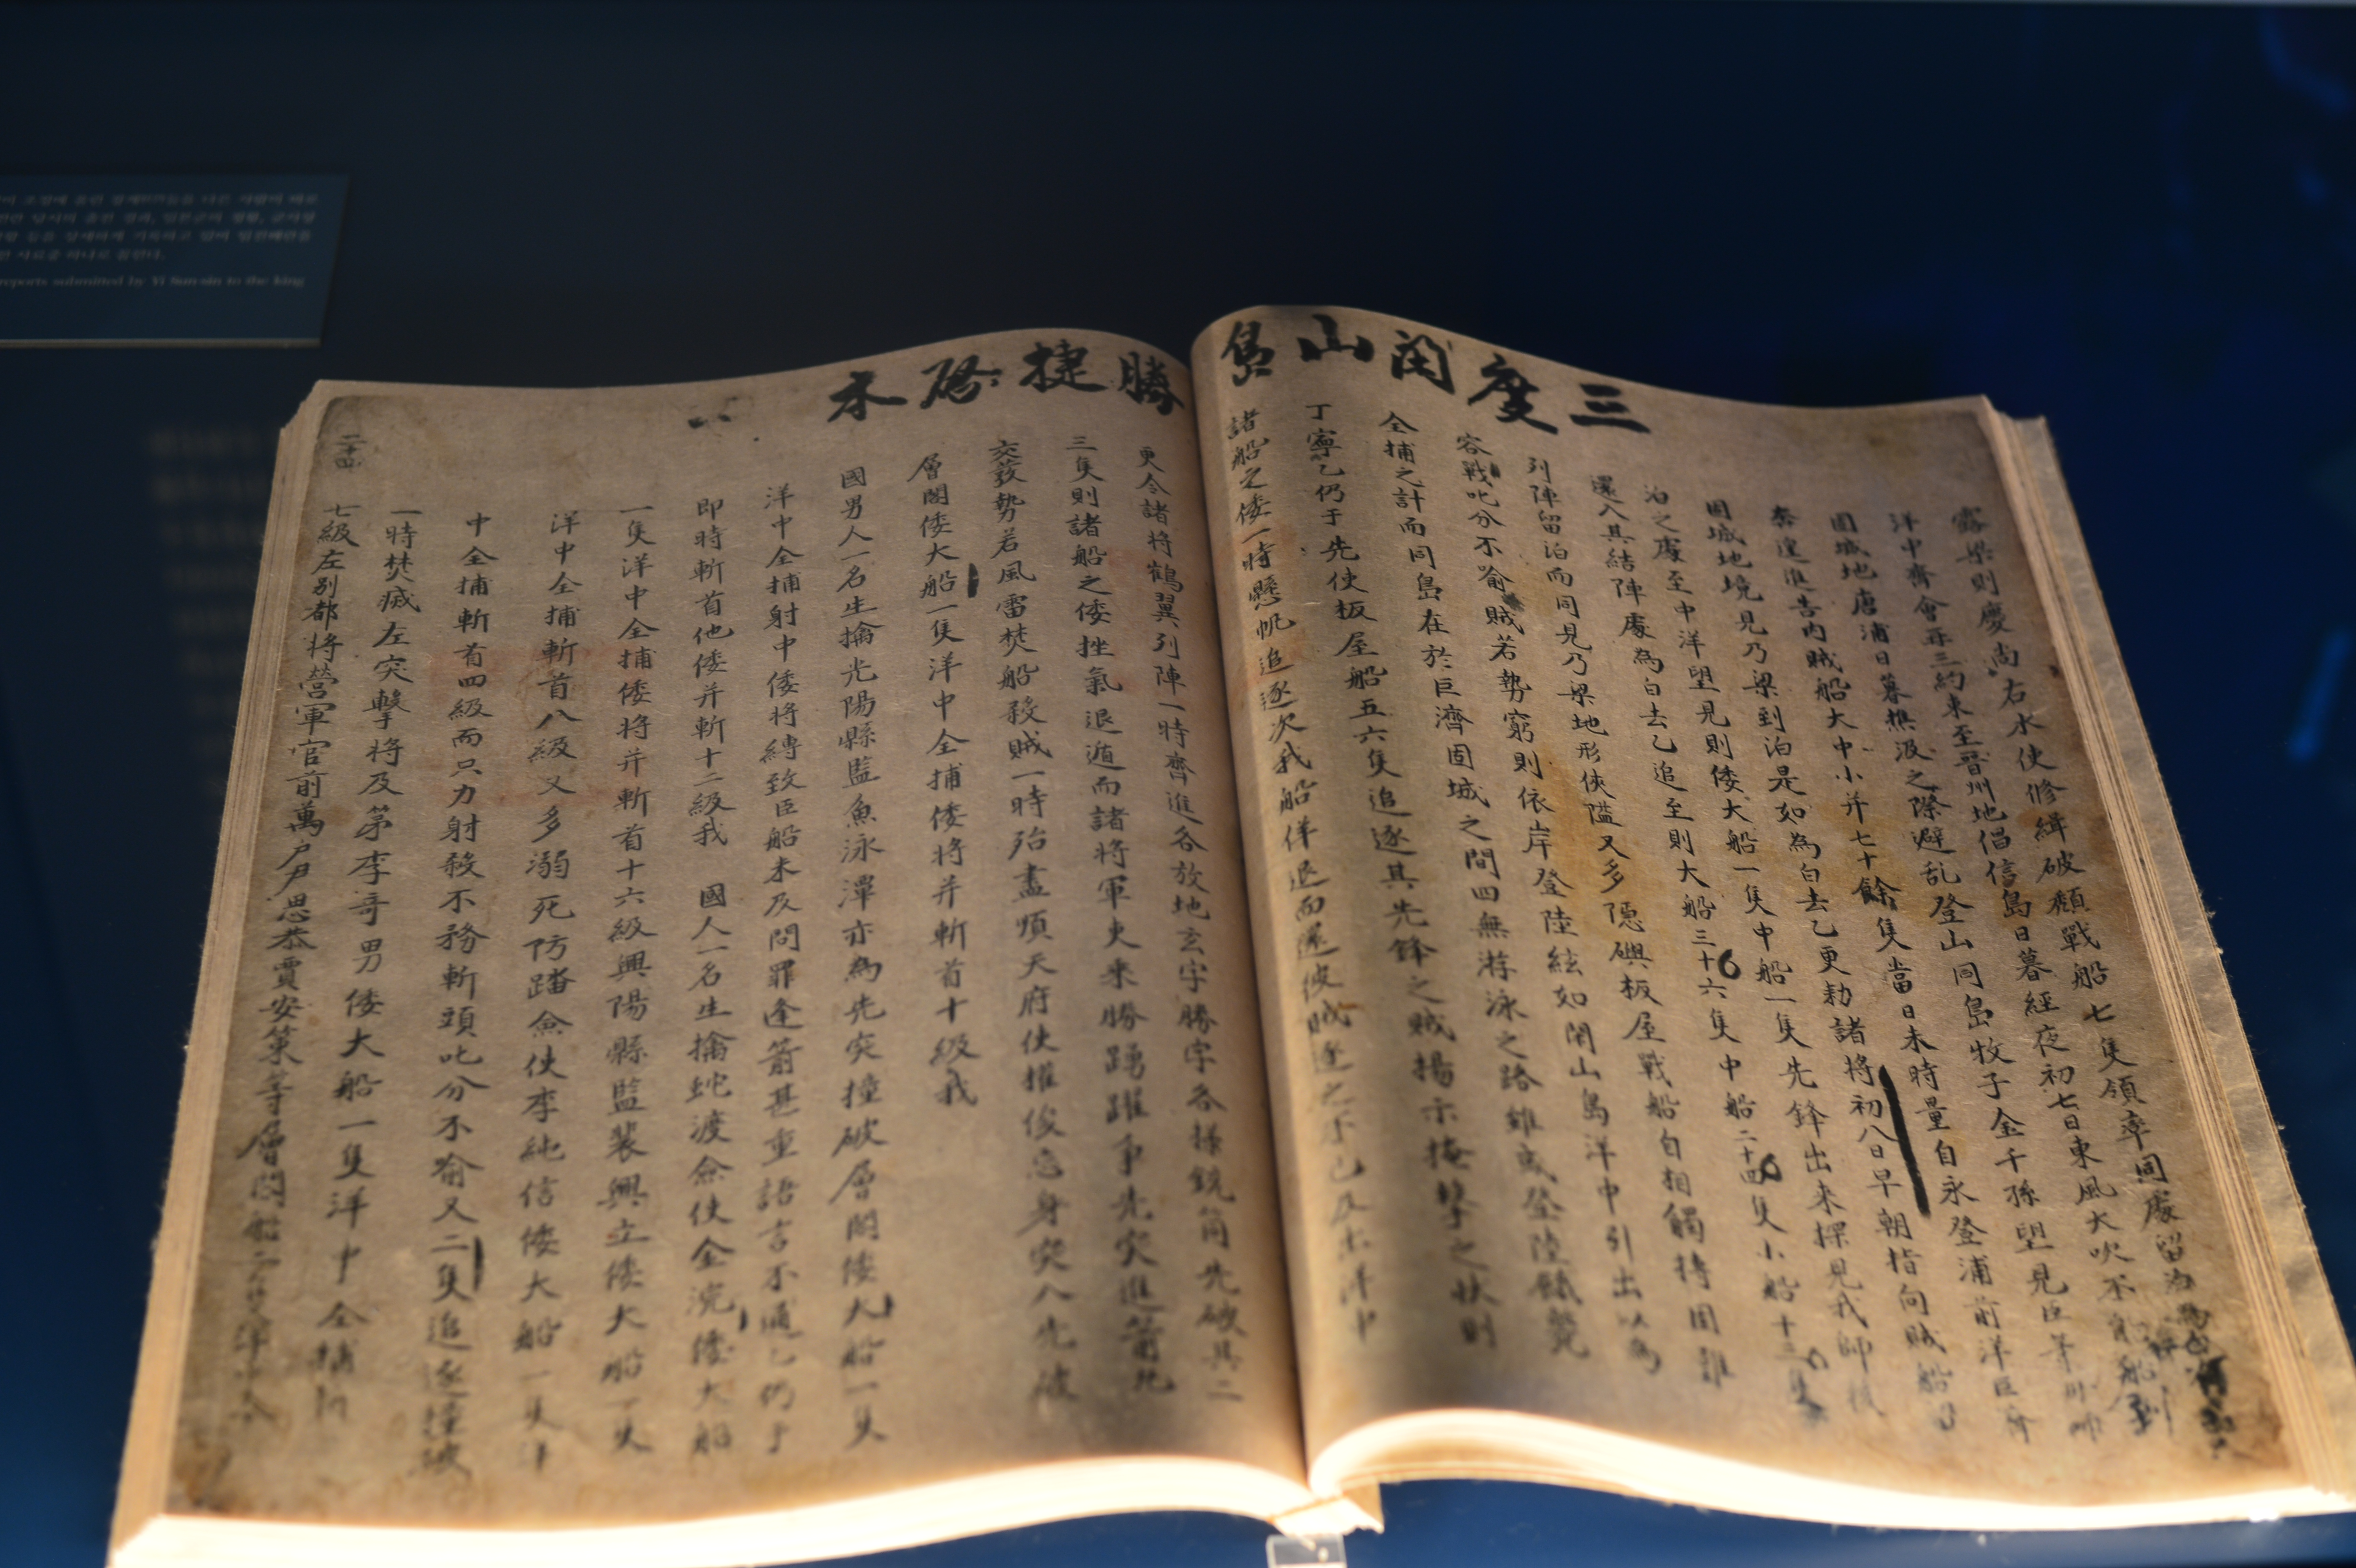 三度閑山島
勝捷啓本
露梁則慶尚右水使修緝破頹戰船七隻領率同處留泊
洋中齊會再三約束至晉州地倡信島日暮經夜初七日東風大吹不
固城地唐浦日暮樵汲之際避乱登山同島牧子金千孫望見臣等舟師
奔遑進告內賊船大中小并七十餘隻當日未時量自永登浦前洋
固城地境見乃梁到泊是如為白去乙更勑諸將初八日早朝指向賊船
泊之處至中洋望見則倭大船一隻中船一隻先鋒出來探見我師
還入其結陣處為白去乙追至則大船三十六隻中船二十四隻小船十三隻
列陣留泊而同見乃梁地形俠隘又多隱嶼板屋戰船自相觸搏固難
容戰叱分不喻賊若勢窮則依岸登陸絃如閑山島洋中引出以為
全捕之計而同島在於巨濟固城之間四無游泳之路雖或登陸餓
丁寧乙仍于先使板屋船五六隻追逐其先鋒之賊揚示掩擊之狀則
諸船之倭一時懸帆追逐次我船佯退而還彼賊逐之不已及出洋中
更令諸將鶴翼列陣一時齊進各放地玄字勝字各樣銃筒先破其二
三隻則諸船之倭挫氣退遁而諸將軍吏乘勝踴躍爭先突進箭丸
交發勢若風雷焚船殺賊一時殆盡順天府使權俊忘身突入先破
層閣倭大船一隻洋中全捕倭將并斬首十級我
國男人一名生擒光陽縣監魚泳潭亦為先突撞破層閣倭大船一隻
洋中全捕射中倭將縛致臣船未及問罪逢箭甚重語言不通乙仍于
即時斬首他倭并斬十二級我 國人一名生擒蛇渡僉使金浣倭大船
一隻洋中全捕倭將并斬首十六級興陽縣監裴興立倭大船一隻
洋中全捕斬首八級又多溺死防踏僉使李純信倭大船一隻洋
中全捕斬首四級而只力射殺不務斬頭叱分不喻又二隻追逐撞破
一時焚滅左突擊將及第李奇男倭大船一隻洋中全捕
七級左別都將營軍官前萬戶尹思恭賈安策等層閣船二隻洋中全
二十四
reports submitted by Yi Sun-sin to the king